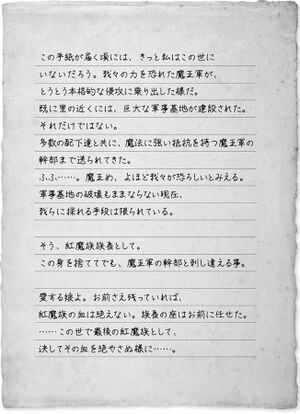 この手紙が届く頃には、きっと私はこの世に
いないだろう。我々の力を恐れた魔王軍が、
とうとう本格的な侵攻に乗り出した様だ。
既に里の近くには、巨大な軍事基地が建設された。
それだけではない。
多数の配下達と共に、魔法に強い抵抗を持つ魔王軍の
幹部まで送られてきた。
ふふ……。魔王め、よほど我々が恐ろしいとみえる。
軍事基地の破壊もままならない現在、
我らに採れる手段は限られている。
そう、紅魔族族長として。
この身を捨ててでも、魔王軍の幹部と刺し違える事。
愛する娘よ。お前さえ残っていれば、
紅魔族の血は絶えない。族長の座はお前に任せた。
……この世で最後の紅魔族として、
決してその血を絶やさぬ様に……。